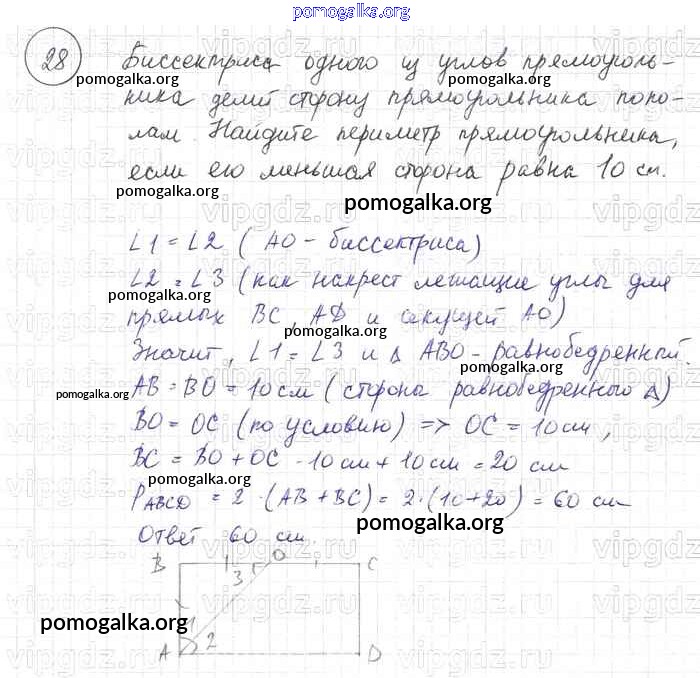 pomogalka.org
28
Биссектриса одного из углов прямоуголь-
pomogalka.org pomogalka.org
ника делит сторону прямоугольника попо-
лам. Найдите периметр прямоугольника,
pomogalka.org
если его меньшая сторона равна 10 см.
pomogalka.org
pomogalka.org
∠1 = ∠2 (АО - биссектриса)
∠2 = ∠3 (как накрест лежащие углы для
pomogalka.org
прямых BC AD и секущей АО)
pomogalka.org
Значит, ∠1 = ∠3 и Δ ABO - равнобедренный.
pomogalka.org
AB = BO = 10 см (стороны равнобедренного Δ)
pomogalka.org
BO = OC (по условию) => OC = 10 см,
BC = BO + OC - 10 см + 10 см = 20 см
pomogalka.org
P ABCD = 2 · (AB + BC) = 2 · (10 + 20) = 60 см
pomogalka.org
Ответ 60 см.
B O C
3
pomogalka.org
1
2
A D
vipgdz.ru